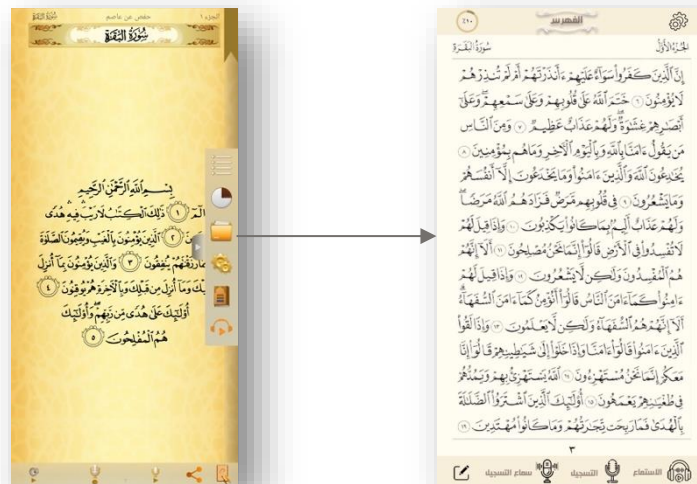 الجزء ١
حفص عن عاصم
سُورَةُ البَقَرَة
سُورَةُ البَقَرَةِ
بِسْمِ ٱللَّهِ ٱلرَّحْمَٰنِ ٱلرَّحِيمِ
الٓمٓ ١ ذَٰلِكَ ٱلْكِتَٰبُ لَا رَيْبَ فِيهِ هُدًى
٢ ٱلَّذِينَ يُؤْمِنُونَ بِٱلْغَيْبِ وَيُقِيمُونَ ٱلصَّلَوٰةَ
رَزَقْنَٰهُمْ يُنفِقُونَ ٣ وَٱلَّذِينَ يُؤْمِنُونَ بِمَآ أُنزِلَ
وَمَآ أُنزِلَ مِن قَبْلِكَ وَبِٱلْءَاخِرَةِ هُمْ يُوقِنُونَ ٤
أُو۟لَٰٓئِكَ عَلَىٰ هُدًى مِّن رَّبِّهِمْ وَأُو۟لَٰٓئِكَ
هُمُ ٱلْمُفْلِحُونَ ٥
الفهرس
الجُزْءُ الأَوَّلُ
سُورَةُ البَقَرَةِ
إِنَّ ٱلَّذِينَ كَفَرُوا۟ سَوَآءٌ عَلَيْهِمْ ءَأَنذَرْتَهُمْ أَمْ لَمْ تُنذِرْهُمْ
لَا يُؤْمِنُونَ ٦ خَتَمَ ٱللَّهُ عَلَىٰ قُلُوبِهِمْ وَعَلَىٰ سَمْعِهِمْ وَعَلَىٰٓ
أَبْصَٰرِهِمْ غِشَٰوَةٌ وَلَهُمْ عَذَابٌ عَظِيمٌ ٧ وَمِنَ ٱلنَّاسِ
مَن يَقُولُ ءَامَنَّا بِٱللَّهِ وَبِٱلْيَوْمِ ٱلْءَاخِرِ وَمَا هُم بِمُؤْمِنِينَ ٨
يُخَٰدِعُونَ ٱللَّهَ وَٱلَّذِينَ ءَامَنُوا۟ وَمَا يَخْدَعُونَ إِلَّآ أَنفُسَهُمْ
وَمَا يَشْعُرُونَ ٩ فِى قُلُوبِهِم مَّرَضٌ فَزَادَهُمُ ٱللَّهُ مَرَضًا
وَلَهُمْ عَذَابٌ أَلِيمٌۢ بِمَا كَانُوا۟ يَكْذِبُونَ ١٠ وَإِذَا قِيلَ لَهُمْ
لَا تُفْسِدُوا۟ فِى ٱلْأَرْضِ قَالُوٓا۟ إِنَّمَا نَحْنُ مُصْلِحُونَ ١١ أَلَآ إِنَّهُمْ
هُمُ ٱلْمُفْسِدُونَ وَلَٰكِن لَّا يَشْعُرُونَ ١٢ وَإِذَا قِيلَ لَهُمْ
ءَامِنُوا۟ كَمَآ ءَامَنَ ٱلنَّاسُ قَالُوٓا۟ أَنُؤْمِنُ كَمَآ ءَامَنَ ٱلسُّفَهَآءُ
أَلَآ إِنَّهُمْ هُمُ ٱلسُّفَهَآءُ وَلَٰكِن لَّا يَعْلَمُونَ ١٣ وَإِذَا لَقُوا۟
ٱلَّذِينَ ءَامَنُوا۟ قَالُوٓا۟ ءَامَنَّا وَإِذَا خَلَوْا۟ إِلَىٰ شَيَٰطِينِهِمْ قَالُوٓا۟ إِنَّا
مَعَكُمْ إِنَّمَا نَحْنُ مُسْتَهْزِءُونَ ١٤ ٱللَّهُ يَسْتَهْزِئُ بِهِمْ وَيَمُدُّهُمْ
فِى طُغْيَٰنِهِمْ يَعْمَهُونَ ١٥ أُو۟لَٰٓئِكَ ٱلَّذِينَ ٱشْتَرَوُا۟ ٱلضَّلَٰلَةَ
بِٱلْهُدَىٰ فَمَا رَبِحَت تِّجَٰرَتُهُمْ وَمَا كَانُوا۟ مُهْتَدِينَ ١٦
٣
الاستماع
التسجيل
سماع التسجيل